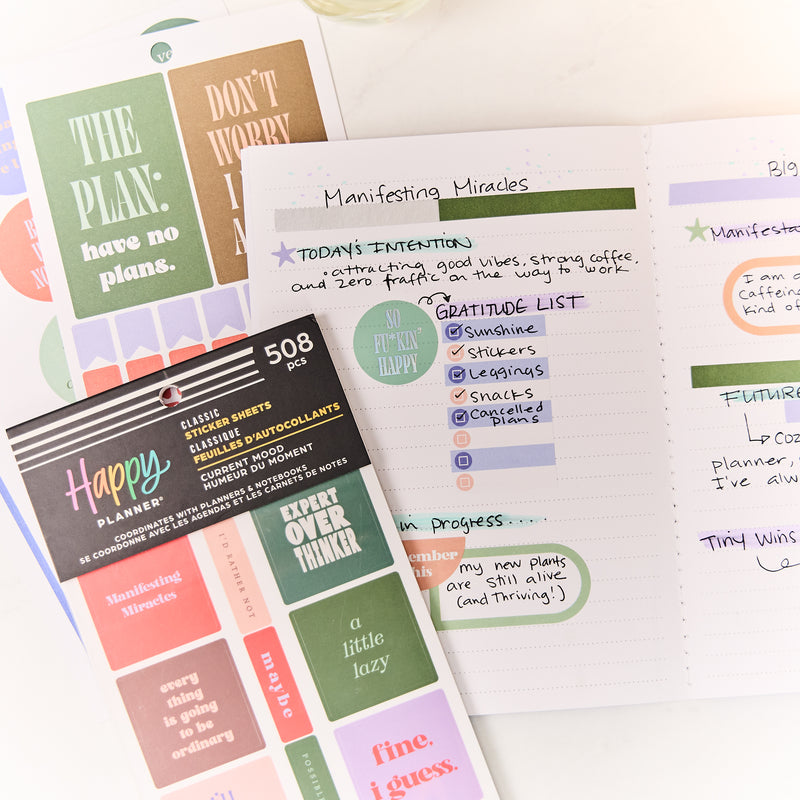 THE
PLAN:
have no
plans.
DON'T
WORRY
508
pcs
CLASSIC
STICKER SHEETS
CLASSIQUE
FEUILLES D'AUTOCOLLANTS
CURRENT MOOD
HUMEUR DU MOMENT
Happy
PLANNER®
COORDINATES WITH PLANNERS & NOTEBOOKS
SE COORDONNE AVEC LES AGENDAS ET LES CARNETS DE NOTES
EXPERT
OVER
THINKER
I'D RATHER NOT
Manifesting
Miracles
a
little
lazy
maybe
every
thing
is going
to be
ordinary
fine.
i guess.
Manifesting Miracles
TODAY'S INTENTION
• attracting good vibes, strong coffee,
and zero traffic on the way to work
SO
FU*KIN'
HAPPY
GRATITUDE LIST
Sunshine
Stickers
Leggings
Snacks
Cancelled
Plans
in progress....
my new plants
are still alive
(and thriving!)
I am
kind of
FUTURE
planner,
I've
Tiny Wins